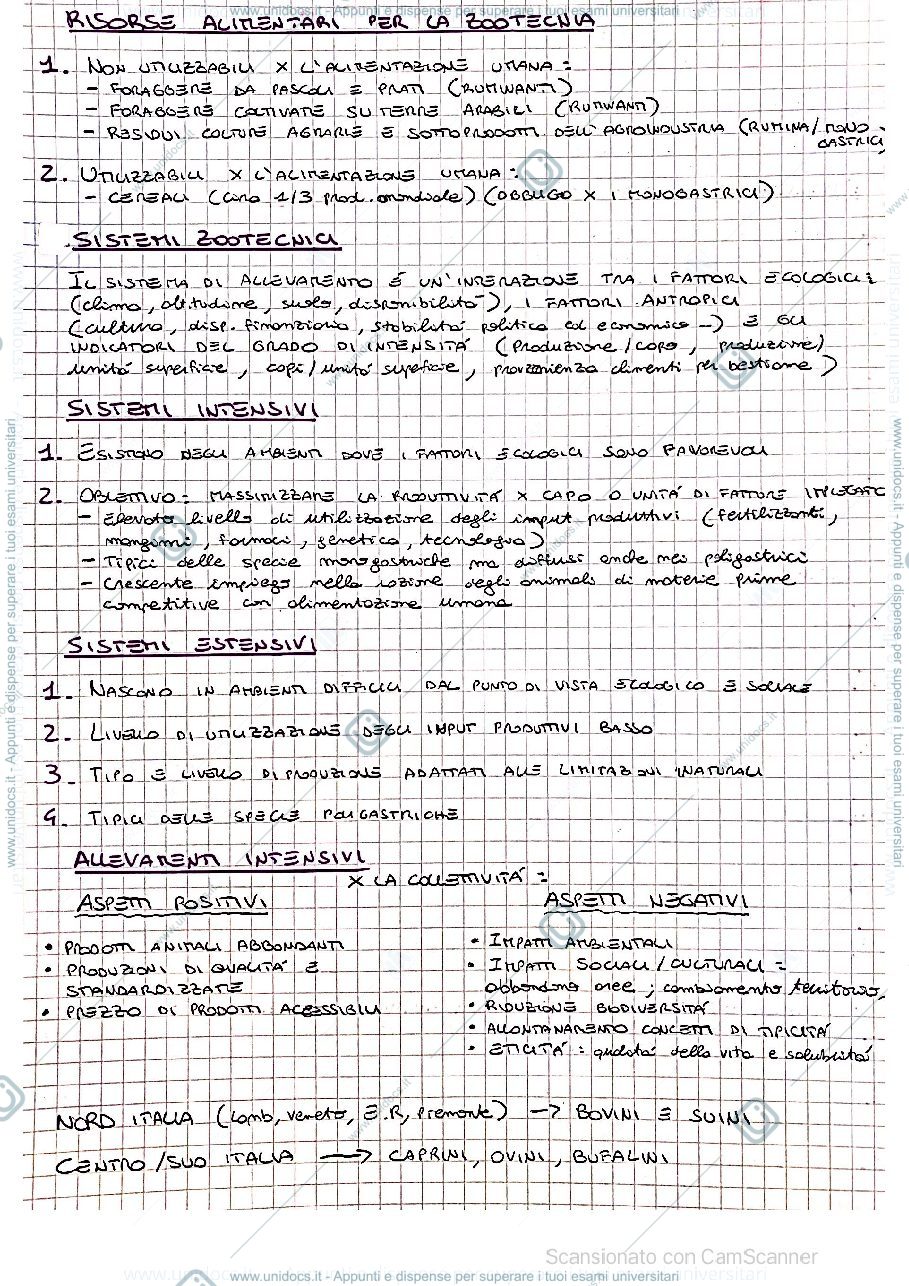 www.unidocs.it - Appunti e dispense per superare i tuoi esami universitari
RISORSE ALIMENTARI PER LA ZOOTECNIA
1. NON UTILIZZABILI X L'ALIMENTAZIONE UMANA:
- FORAGGERE DA PASCOLI E PRATI (RUMINANTI)
- FORAGGERE COLTIVATE SU TERRE ARABILI (RUMINANTI)
- RESIDUI COLTURE AGRARIE E SOTTOPRODOTTI DELL'AGROINDUSTRIA (RUMINA/MONO-
GASTRICI)
2. UTILIZZABILI X L'ALIMENTAZIONE UMANA:
- CEREALI (circa 1/3 prod. mondiale) (OBBLIGO X I MONOGASTRICI)
SISTEMI ZOOTECNICI
IL SISTEMA DI ALLEVAMENTO É UN'INTERAZIONE TRA I FATTORI ECOLOGICI:
(clima, altitudine, suolo, disponibilità), I FATTORI ANTROPICI
(cultura, disp. finanziaria, stabilità politica ed economica -) E GLI
INDICATORI DEL GRADO DI INTENSITÁ (Produzione/capo, produzione/
unità superficie, capi/unità superficie, provenienza alimenti per bestiame)
SISTEMI INTENSIVI
1. ESISTONO NEGLI AMBIENTI DOVE I FATTORI ECOLOGICI SONO FAVOREVOLI
2. OBIETTIVO: MASSIMIZZARE LA PRODUTTIVITÁ X CAPO O UNITÁ DI FATTORE IMPIEGATO
- Elevato livello di utilizzazione degli input produttivi (fertilizzanti,
mangimi, farmaci, genetica, tecnologia)
- Tipici delle specie monogastriche ma diffusi anche nei poligastrici
- Crescente impiego nella razione degli animali di materie prime
competitive con alimentazione umana
SISTEMI ESTENSIVI
1. NASCONO IN AMBIENTI DIFFICILI DAL PUNTO DI VISTA ECOLOGICO E SOCIALE
2. LIVELLO DI UTILIZZAZIONE DEGLI INPUT PRODUTTIVI BASSO
3. TIPO E LIVELLO DI PRODUZIONE ADATTATI ALLE LIMITAZIONI NATURALI
4. TIPICI DELLE SPECIE POLIGASTRICHE
ALLEVAMENTI INTENSIVI
X LA COLLETTIVITÁ:
ASPETTI POSITIVI
• PRODOTTI ANIMALI ABBONDANTI
• PRODUZIONI DI QUALITÁ E
STANDARDIZZATE
• PREZZO DI PRODOTTI ACCESSIBILI
ASPETTI NEGATIVI
• IMPATTI AMBIENTALI
• IMPATTI SOCIALI/CULTURALI:
abbandono aree; cambiamento territorio,
• RIDUZIONE BIODIVERSITÁ
• ALLONTANAMENTO CONCETTI DI TIPICITÁ
• ETICITÁ: qualità della vita e salubrità
NORD ITALIA (Lomb, Veneto, E.R, Piemonte) -> BOVINI E SUINI
CENTRO/SUD ITALIA -> CAPRINI, OVINI, BUFALINI
Scansionato con CamScanner
www.unidocs.it - Appunti e dispense per superare i tuoi esami universitari